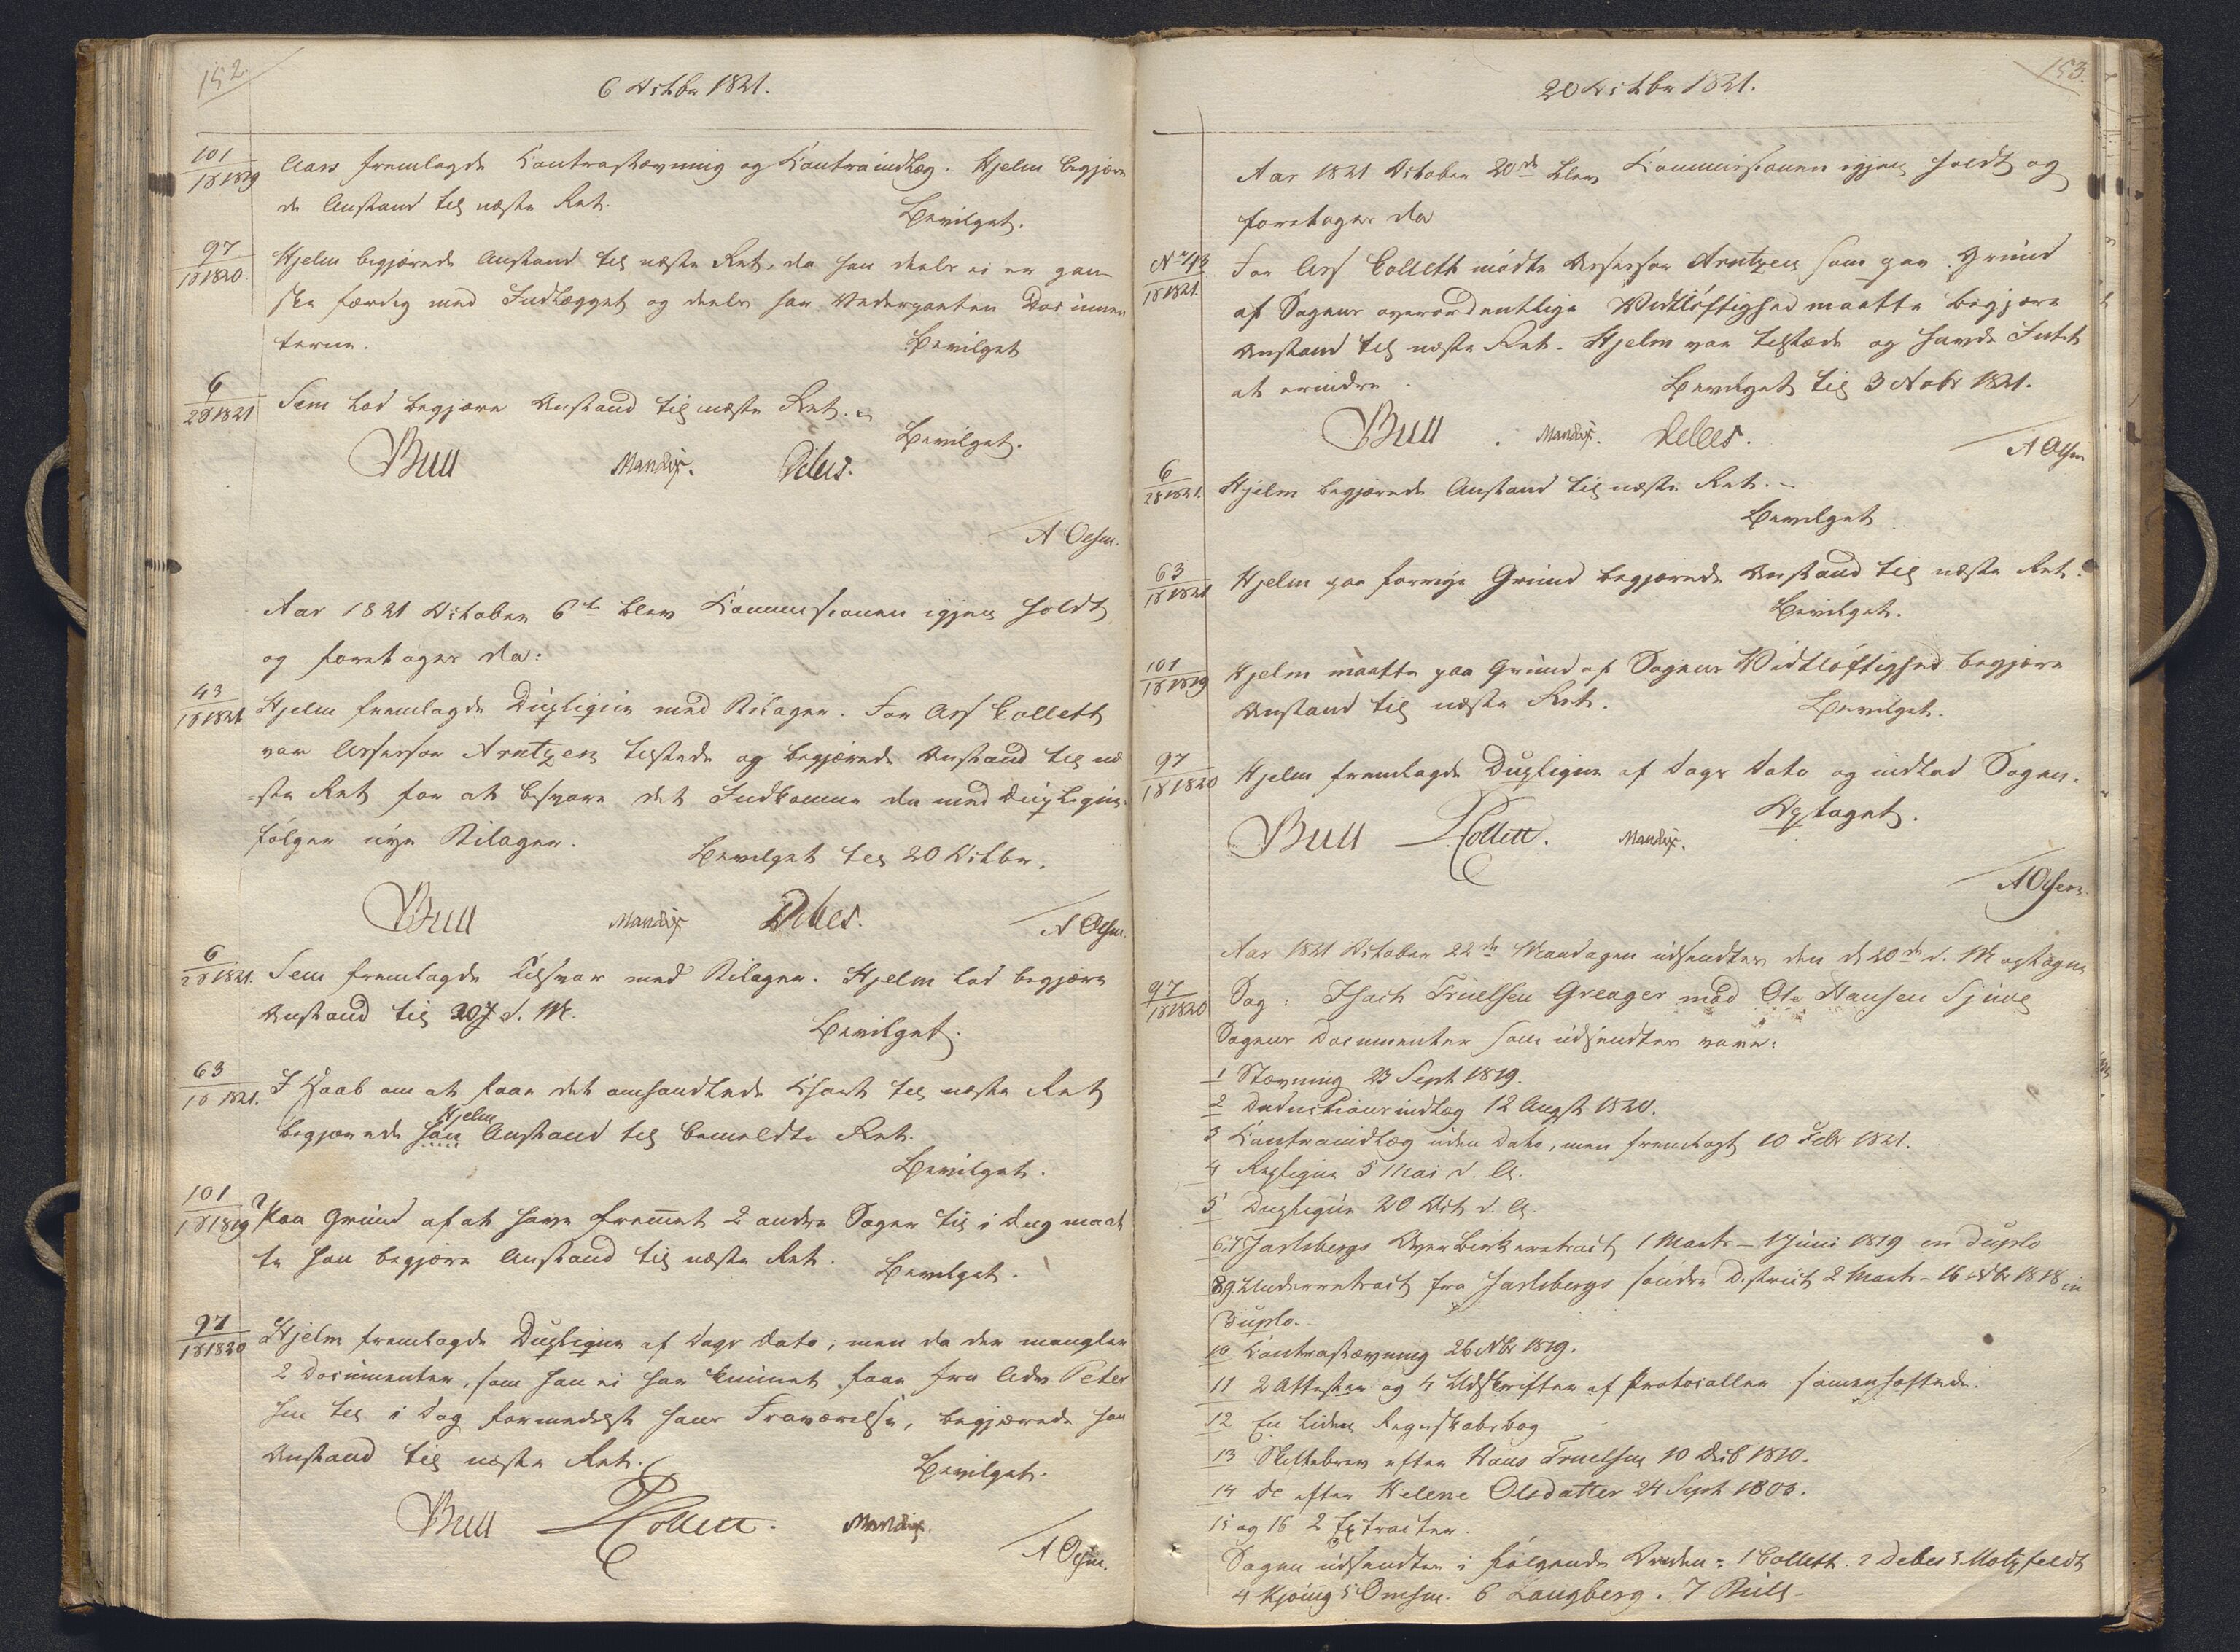 152.
6 Octbr 1821.
101
1 S 1819
Aars fremlagde Contrastævning og Contraindlæg. Hjelm begjære
de Anstand til næste Ret.
Bevilget.
97
1 S 1820
Hjelm begjærede Anstand til næste Ret, da han deels ei er gan
ske færdig med Indlægget og deels har Vederparten Documen
terne.
Bevilget
6
2 S 1821
Sem lod begjære Anstand til næste Ret.
Bevilget.
Bull Mandix. Debes.
A Olsen.
Aar 1821 October 6te blev Commissionen igjen holdt
og foretoges da:
43
1 S 1821
Hjelm fremlagde Dupliqve med Bilager. For Ass Collett
var Assessor Arntzen tilstede og begjærede Anstand til næ
ste Ret for at besvare det Indkomne da med Dupliqven
følger nye Bilager.
Bevilget til 20 Octbr.
Bull Mandix Debes.
A Olsen.
6
2 S 1821.
Sem fremlagde Tilsvar med Bilager. Hjelm lod begjære
Anstand til 20 d. M.
Bevilget.
63
1 S 1821.
I Haab om at faae det omhandlede Skort til næste Ret
Hjelm
begjærede han Anstand til bemeldte Ret.
Bevilget.
101
1 S 1819
Paa Grund af at have fremmet 2 andre Sager til i Dag maat
te han begjære Anstand til næste Ret.
Bevilget.
97
1 S 1820
Hjelm fremlagde Dupliqve af Dags Dato; men da der mangler
2 Documenter, som han ei har kunnet faae fra Adv Peter
sen til i Dag formedelst hans Fraværelse, begjærede han
Anstand til næste Ret.
Bevilget.
Bull PCollett. Mandix.
A Olsen.
153.
20 Octbr 1821.
Aar 1821 October 20de blev Commissionen igjen holdt og
foretoges da
No 43
1 S 1821.
For Ass Collett mødte Assessor Arntzen som paa Grund
af Sagens overordentlige Vidtløftighed maatte begjære
Anstand til næste Ret. Hjelm var tilstæde og havde Intet
at erindre.
Bevilget til 3 Nobr 1821.
Bull. Mandix. Debes.
A Olsen
6
2 S 1821.
Hjelm begjærede Anstand til næste Ret.
Bevilget
63
1 S 1821
Hjelm paa forrige Grund begjærede Anstand til næste Ret.
Bevilget.
101
1 S 1819
Hjelm maatte paa Grund af Sagens Vidtløftighed begjære
Anstand til næste Ret.
Bevilget.
97
1 S 1820
Hjelm fremlagde Dupliqve af Dags Dato og indlod Sagen.
Optaget.
Bull PCollett. Mandix.
A Olsen.
Aar 1821 October 22de Mandagen udsendtes den d 20de d. M optagne
97
1 S 1820
Sag: Isach Truelsen Greager mod Ole Hansen Sjuve
Sagens Documenter som udsendtes vare:
1 Stævning 23 Sept 1819.
2 Deductionsindlæg 12 Augst 1820.
3 Contraindlæg uden Dato, men fremlagt 10 Febr 1821.
4 Repliqve 5 Mai d. A.
5 Dupliqve 20 Oct d. A.
6.7. Jarlsbergs Overbirksretsact 1 Marts – 1 Juni 1819 in duplo
8.9. Underretsact fra Jarlsbergs søndre District 2 Marts – 16 Octbr 1818 in
Duplo.
10 Contrastævning 26 Nbr 1819.
11 2 Attester og 4 Udskrifter af Protocoller samenheftede.
12 En liden Regnskabsbog
13 Skiftebrev efter Hans Truelsen 10 Decb 1810.
14 do efter Helene Olsdatter 24 Sept 1803.
15 og 16 2 Extracter.
Sagen udsendtes i følgende Orden: 1 Collett. 2 Debes 3 Motzfeldt
4 Kjøing 5 Omsen. 6 Langberg. 7 Bull